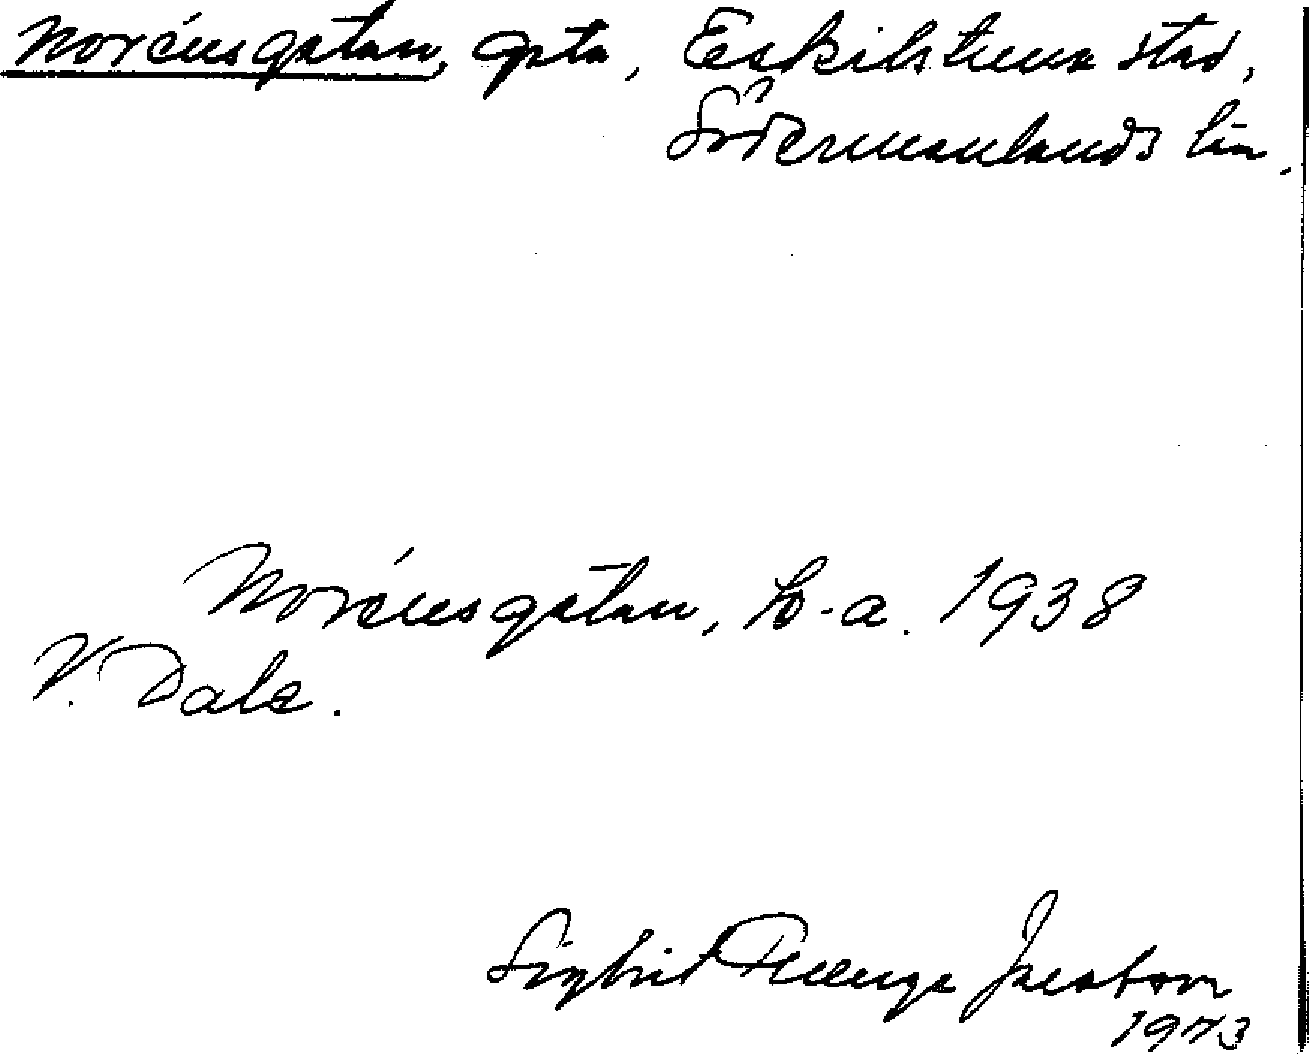 Noréusgatan, gata, Eskilstuna stad,
Södermanlands län.
Noréusgatan, h-a. 1938
V. Dala.
Sigbrit Plænge Jacobson
1973